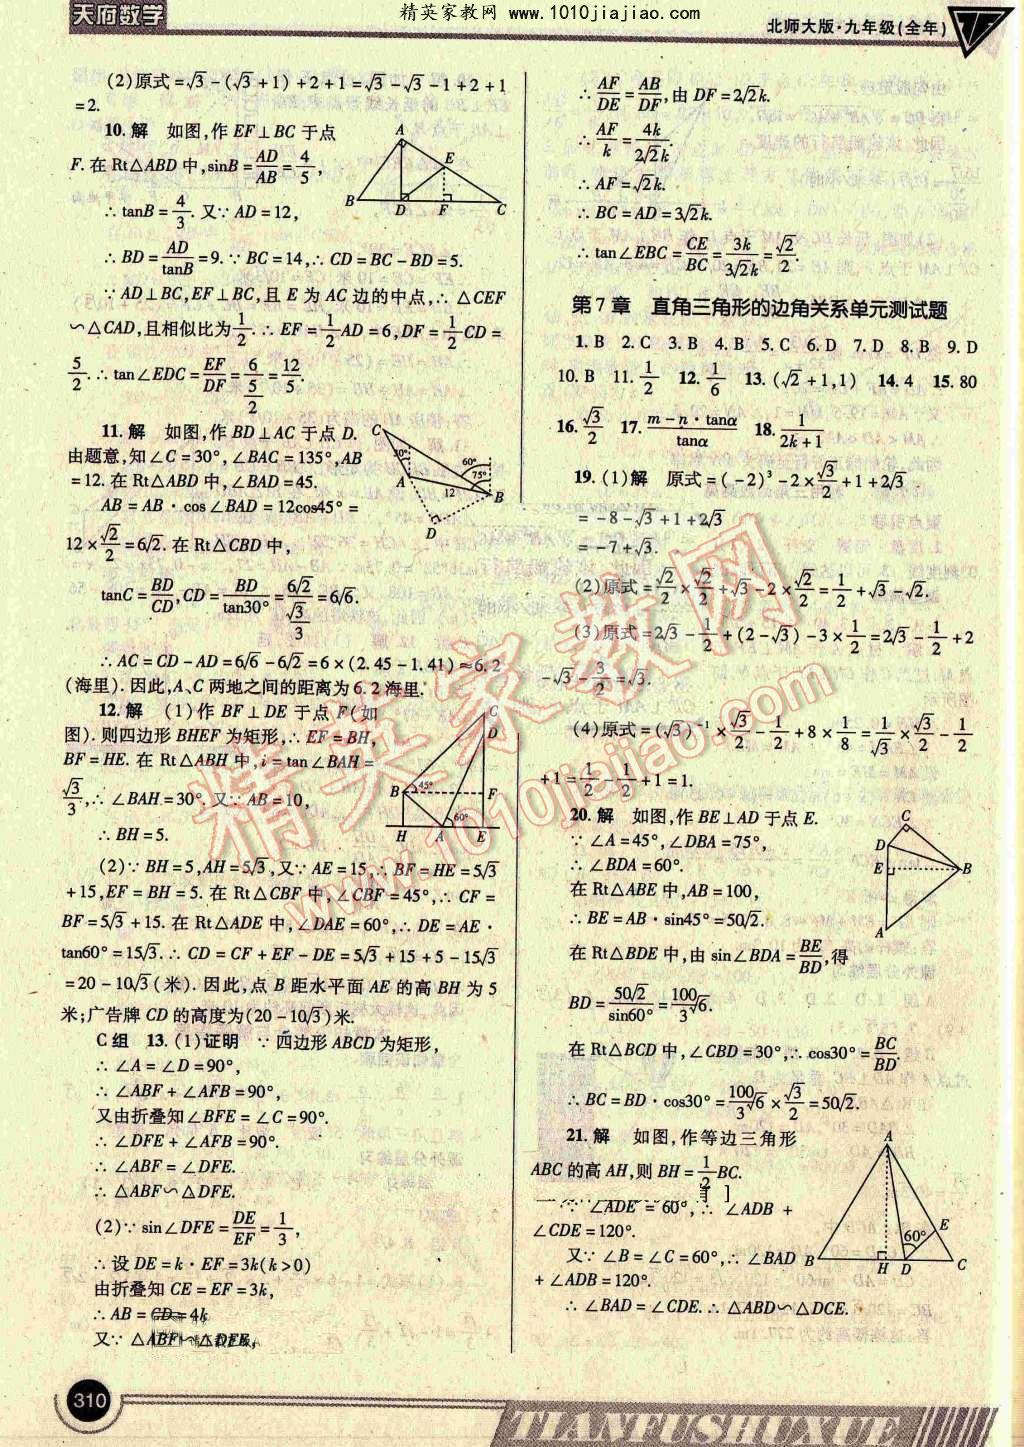 天府数学
精英家教网 - www.1010jiajiao.com
北师大版·九年级(全年)
(2)原式=√3-(√3+1)+2+1=√3-√3-1+2+1
=2.
10.解 如图,作EF⊥BC于点
F.在Rt△ABD中,sinB=AD/AB=4/5,
∴tanB=4/3.又∵AD=12,
∴BD=AD/tanB=9.∵BC=14,∴CD=BC-BD=5.
∵AD⊥BC,EF⊥BC,且E为AC边的中点,∴△CEF
∽△CAD,且相似比为1/2.∴EF=1/2AD=6,DF=1/2CD=
5/2.∴tan∠EDC=EF/DF=6/(5/2)=12/5.
A
E
B D F C
11.解 如图,作BD⊥AC于点D.
由题意,知∠C=30°,∠BAC=135°,AB
=12.在Rt△ABD中,∠BAD=45.
AB=AB·cos∠BAD=12cos45°=
12×√2/2=6√2.在Rt△CBD中,
tanC=BD/CD,CD=BD/tan30°=6√2/(√3/3)=6√6.
∴AC=CD-AD=6√6-6√2=6×(2.45-1.41)≈6.2
(海里).因此,A、C两地之间的距离为6.2海里.
C
30° 60°
75°
A
12 B
D
12.解 (1)作BF⊥DE于点F(如
图).则四边形BHEF为矩形,∴EF=BH,
BF=HE.在Rt△ABH中,i=tan∠BAH=
√3/3,∴∠BAH=30°.又∵AB=10,
∴BH=5.
C
D
B 45° F
60°
H A E
(2)∵BH=5,AH=5√3,又∵AE=15,∴BF=HE=5√3
+15,EF=BH=5.在Rt△CBF中,∠CBF=45°,∴CF=
BF=5√3+15.在Rt△ADE中,∠DAE=60°,∴DE=AE·
tan60°=15√3.∴CD=CF+EF-DE=5√3+15+5-15√3
=20-10√3(米).因此,点B距水平面AE的高BH为5
米;广告牌CD的高度为(20-10√3)米.
C组 13.(1)证明 ∵四边形ABCD为矩形,
∴∠A=∠D=90°,
∴∠ABF+∠AFB=90°,
又由折叠知∠BFE=∠C=90°.
∴∠DFE+∠AFB=90°.
∴∠ABF=∠DFE.
∴△ABF∽△DFE.
(2)∵sin∠DFE=DE/EF=1/3,
∴设DE=k·EF=3k(k>0)
由折叠知CE=EF=3k,
∴AB=CD=4k
又∵△ABF∽△DFE,
∴AF/DE=AB/DF,由DF=2√2k.
∴AF/k=4k/2√2k.
∴AF=√2k.
∴BC=AD=3√2k.
∴tan∠EBC=CE/BC=3k/3√2k=√2/2.
第7章 直角三角形的边角关系单元测试题
1.B 2.C 3.B 4.B 5.C 6.D 7.D 8.B 9.D
10.B 11.1/2 12.1/6 13.(√2+1,1) 14.4 15.80
16.√3/2 17.(m-n·tanα)/tanα 18.1/(2k+1)
19.(1)解 原式=(-2)³-2×√3/2+1+2√3
=-8-√3+1+2√3
=-7+√3.
(2)原式=√2/2×√2/2+√3-2×√2/2=1/2+√3-√2.
(3)原式=2√3-1/2+(2-√3)-3×1/2=2√3-1/2+2
-√3-3/2=√3.
(4)原式=(√3)⁻¹×√3/2-1/2+8×1/8=1/√3×√3/2-1/2
+1=1/2-1/2+1=1.
20.解 如图,作BE⊥AD于点E.
∵∠A=45°,∠DBA=75°,
∴∠BDA=60°.
在Rt△ABE中,AB=100,
∴BE=AB·sin45°=50√2.
在Rt△BDE中,由sin∠BDA=BE/BD,得
BD=50√2/sin60°=100/3√6.
在Rt△BCD中,∠CBD=30°,∴cos30°=BC/BD.
∴BC=BD·cos30°=100/3√6×√3/2=50√2.
C
D
E B
A
21.解 如图,作等边三角形
ABC的高AH,则BH=1/2BC.
∵∠ADE=60°,∴∠ADB+
∠CDE=120°.
又∵∠B=∠C=60°,∴∠BAD
+∠ADB=120°.
∴∠BAD=∠CDE.∴△ABD∽△DCE.
A
E
60°
B H D C
精英家教网
www.1010jiajiao.com
310
TIANFUSHUXUE